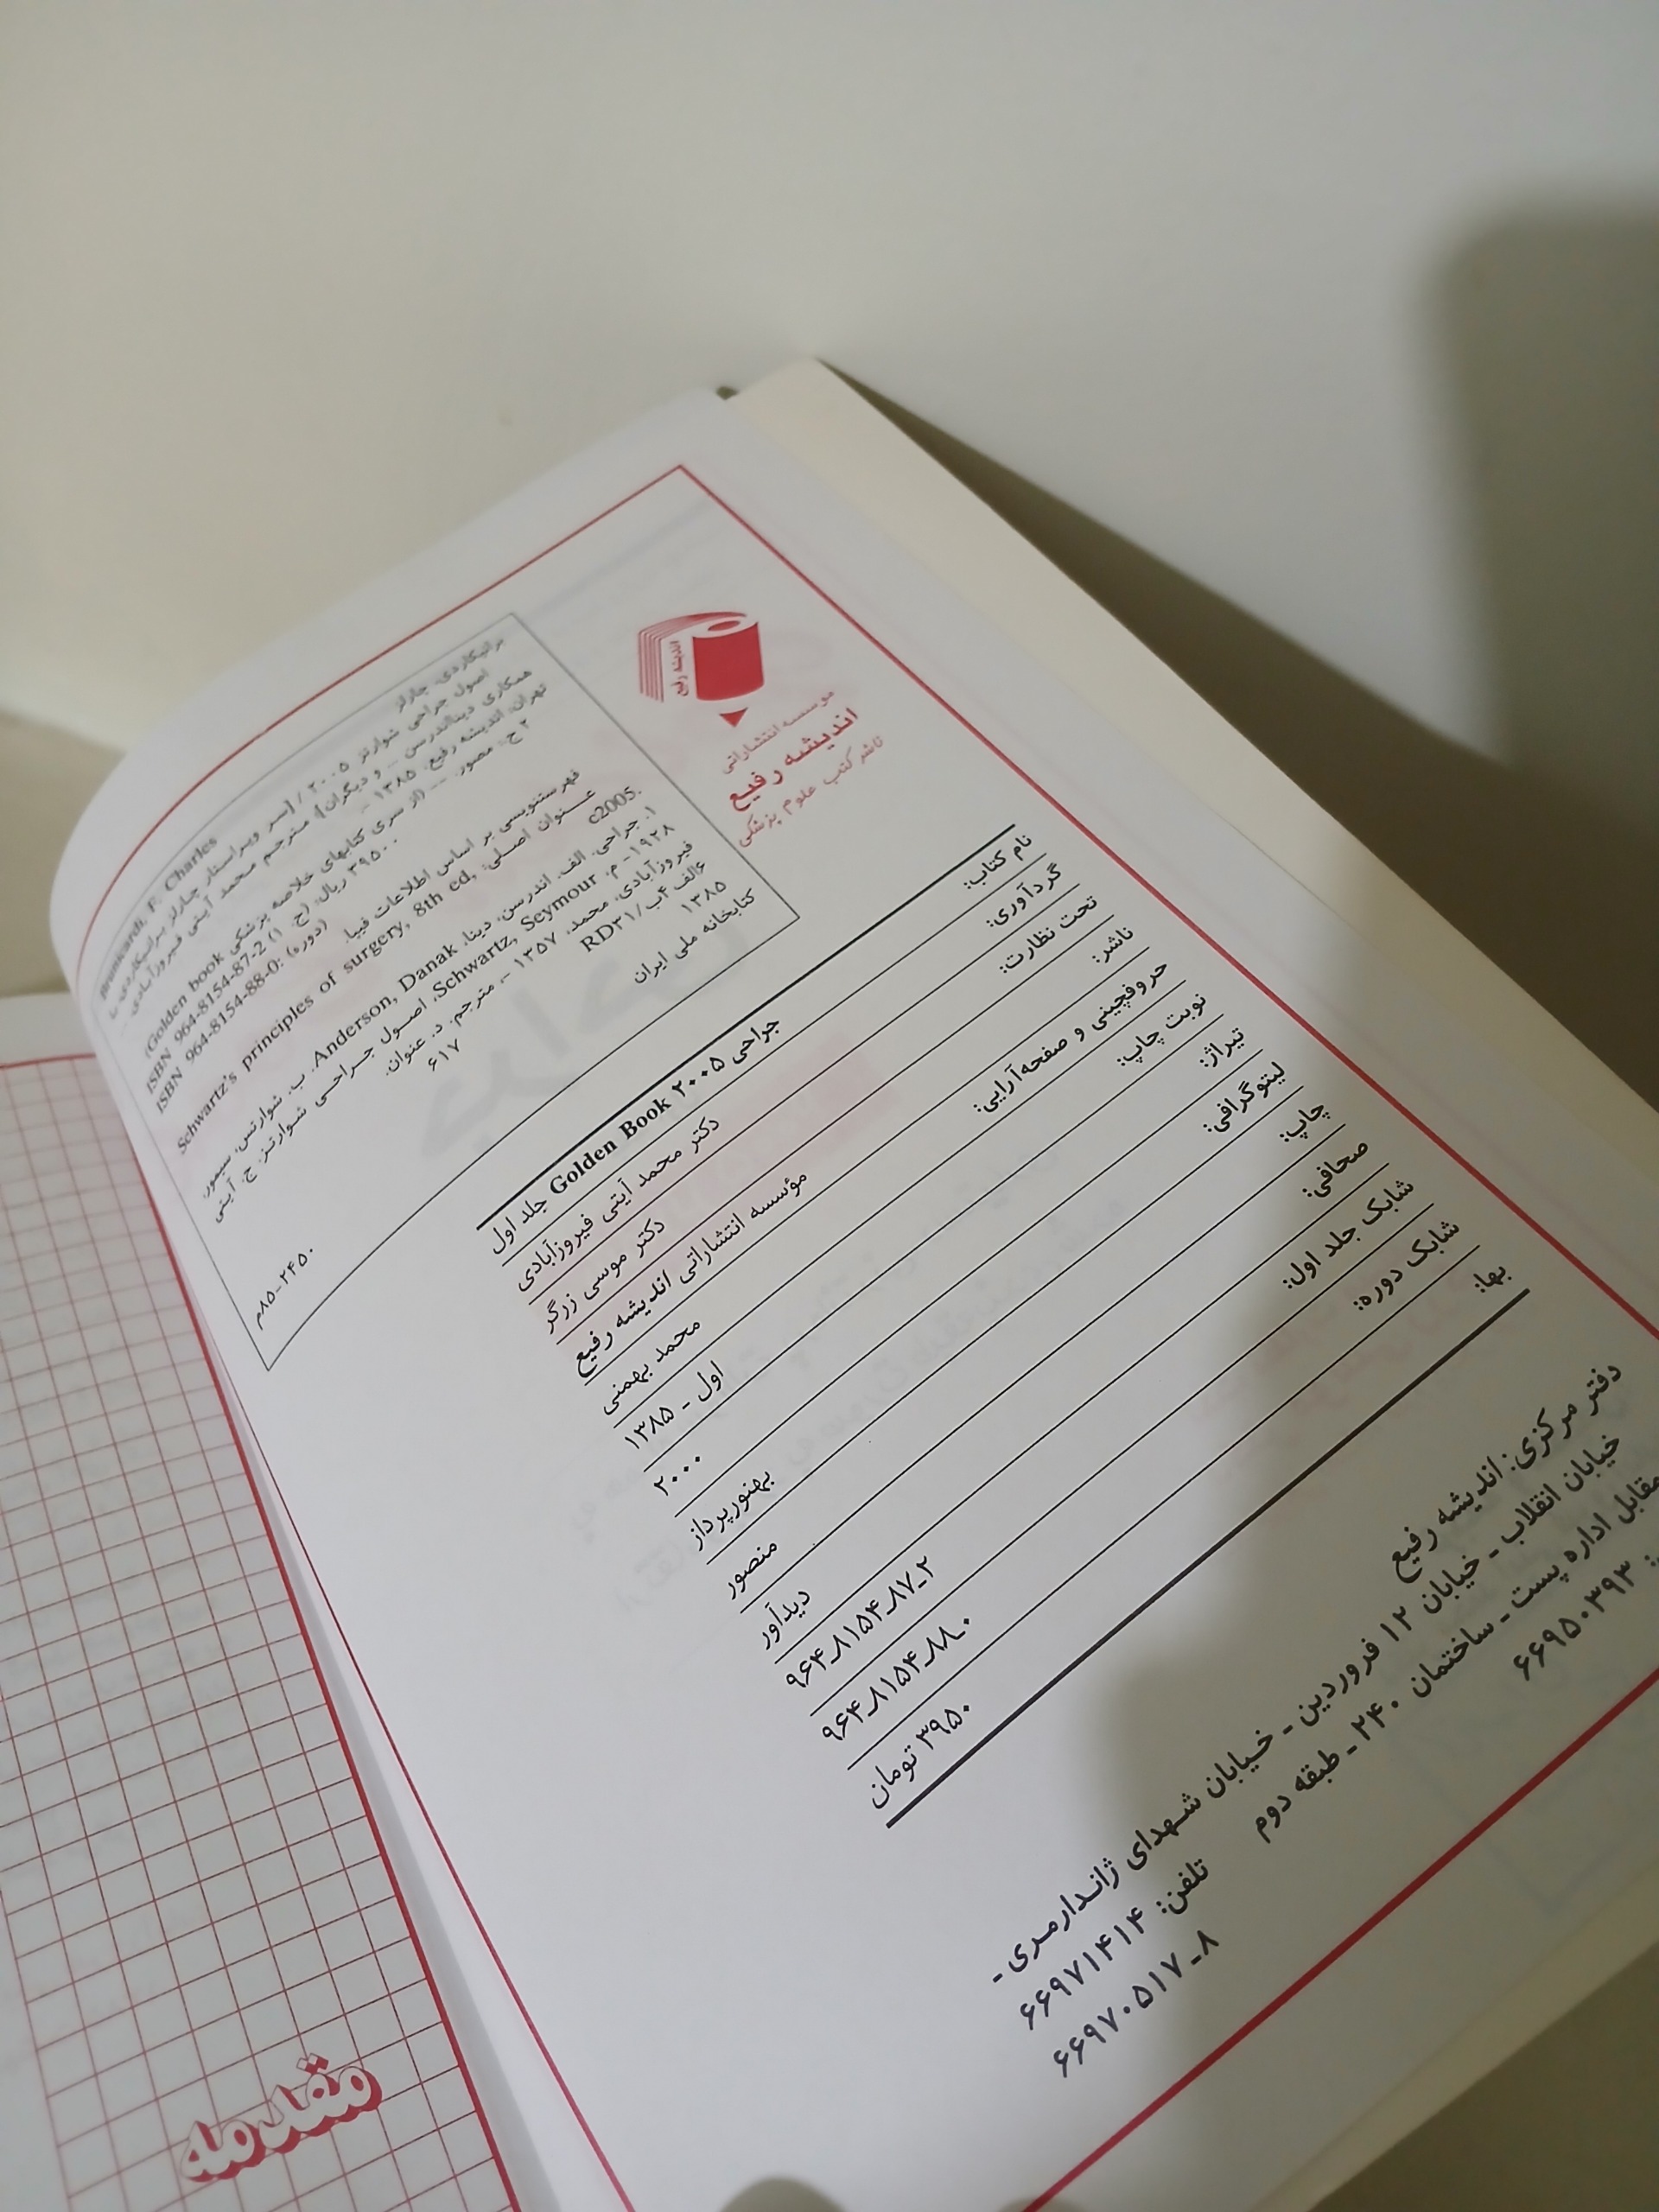 برانیکاردی، چارلز
Brunicardi, F. Charles
اصول جراحی شوارتز ۲۰۰۵ / [سر ویراستار چارلز برانیکاردی، با
همکاری دینااندرسن ... و دیگران]؛ مترجم محمد آیتی فیروزآبادی. ـ
تهران: اندیشه رفیع، ۱۳۸۵ ـ
۲ ج: مصور. ـــ (از سری کتابهای خلاصه پزشکی Golden book)
ISBN 964-8154-87-2 (ج. ۱) ۳۹۵۰۰ ریال؛
ISBN 964-8154-88-0: (دوره)
فهرستنویسی بر اساس اطلاعات فیپا.
عنوان اصلی: Schwartz's principles of surgery, 8th ed,
c2005.
۱. جراحی. الف. اندرسن، دینا، Anderson, Danak. ب. شوارتس، سیمور،
۱۹۲۸- م. Schwartz, Seymour، اصول جراحی شوارتز. ج. آیتی
فیروزآبادی، محمد، ۱۳۵۷ -، مترجم. د. عنوان.
۶الف۴ب/RD۳۱ ۶۱۷
۱۳۸۵
کتابخانه ملی ایران ۲۴۵۰-۸۵م
اندیشه رفیع
موسسه انتشاراتی
اندیشه رفیع
ناشر کتب علوم پزشکی
نام کتاب: جراحی Golden Book ۲۰۰۵ جلد اول
گردآوری: دکتر محمد آیتی فیروزآبادی
تحت نظارت: دکتر موسی زرگر
ناشر: مؤسسه انتشاراتی اندیشه رفیع
حروفچینی و صفحه‌آرایی: محمد بهمنی
نوبت چاپ: اول ـ ۱۳۸۵
تیراژ: ۲۰۰۰
لیتوگرافی: بهنورپرداز
چاپ: منصور
صحافی: دیدآور
شابک جلد اول: ۹۶۴ـ۸۱۵۴ـ۸۷ـ۲
شابک دوره: ۹۶۴ـ۸۱۵۴ـ۸۸ـ۰
بها: ۳۹۵۰ تومان
دفتر مرکزی: اندیشه رفیع
خیابان انقلاب ـ خیابان ۱۲ فروردین ـ خیابان شهدای ژاندارمری ـ
مقابل اداره پست ـ ساختمان ۲۴۰ ـ طبقه دوم
تلفن: ۶۶۹۷۱۴۱۴
۶۶۹۵۰۳۹۳
۶۶۹۷۰۵۱۷ـ۸
مقدمه